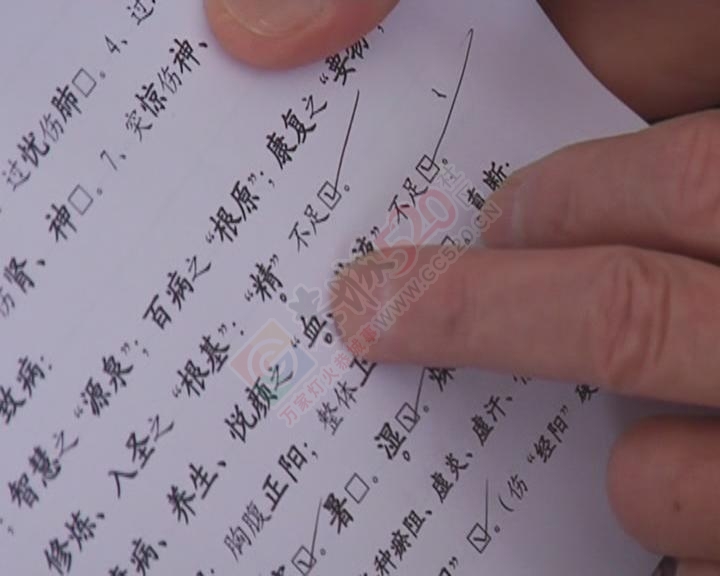 过忧伤肺□。4、过
伤肾、神□。7、突惊伤神、
致病:
；智慧之“源泉”；百病之“根原”；康复之“要物”；
修炼、入圣之“根基”：“精”不足☑。
病、养生、悦颜之“血、 不足☑。
胸腹正阳；整体正 直断.
☑。署□。湿☑。
种瘀阻、虚炎、虚汗、
”☑。（伤“经阳”
520社
WWW.GC520.CN